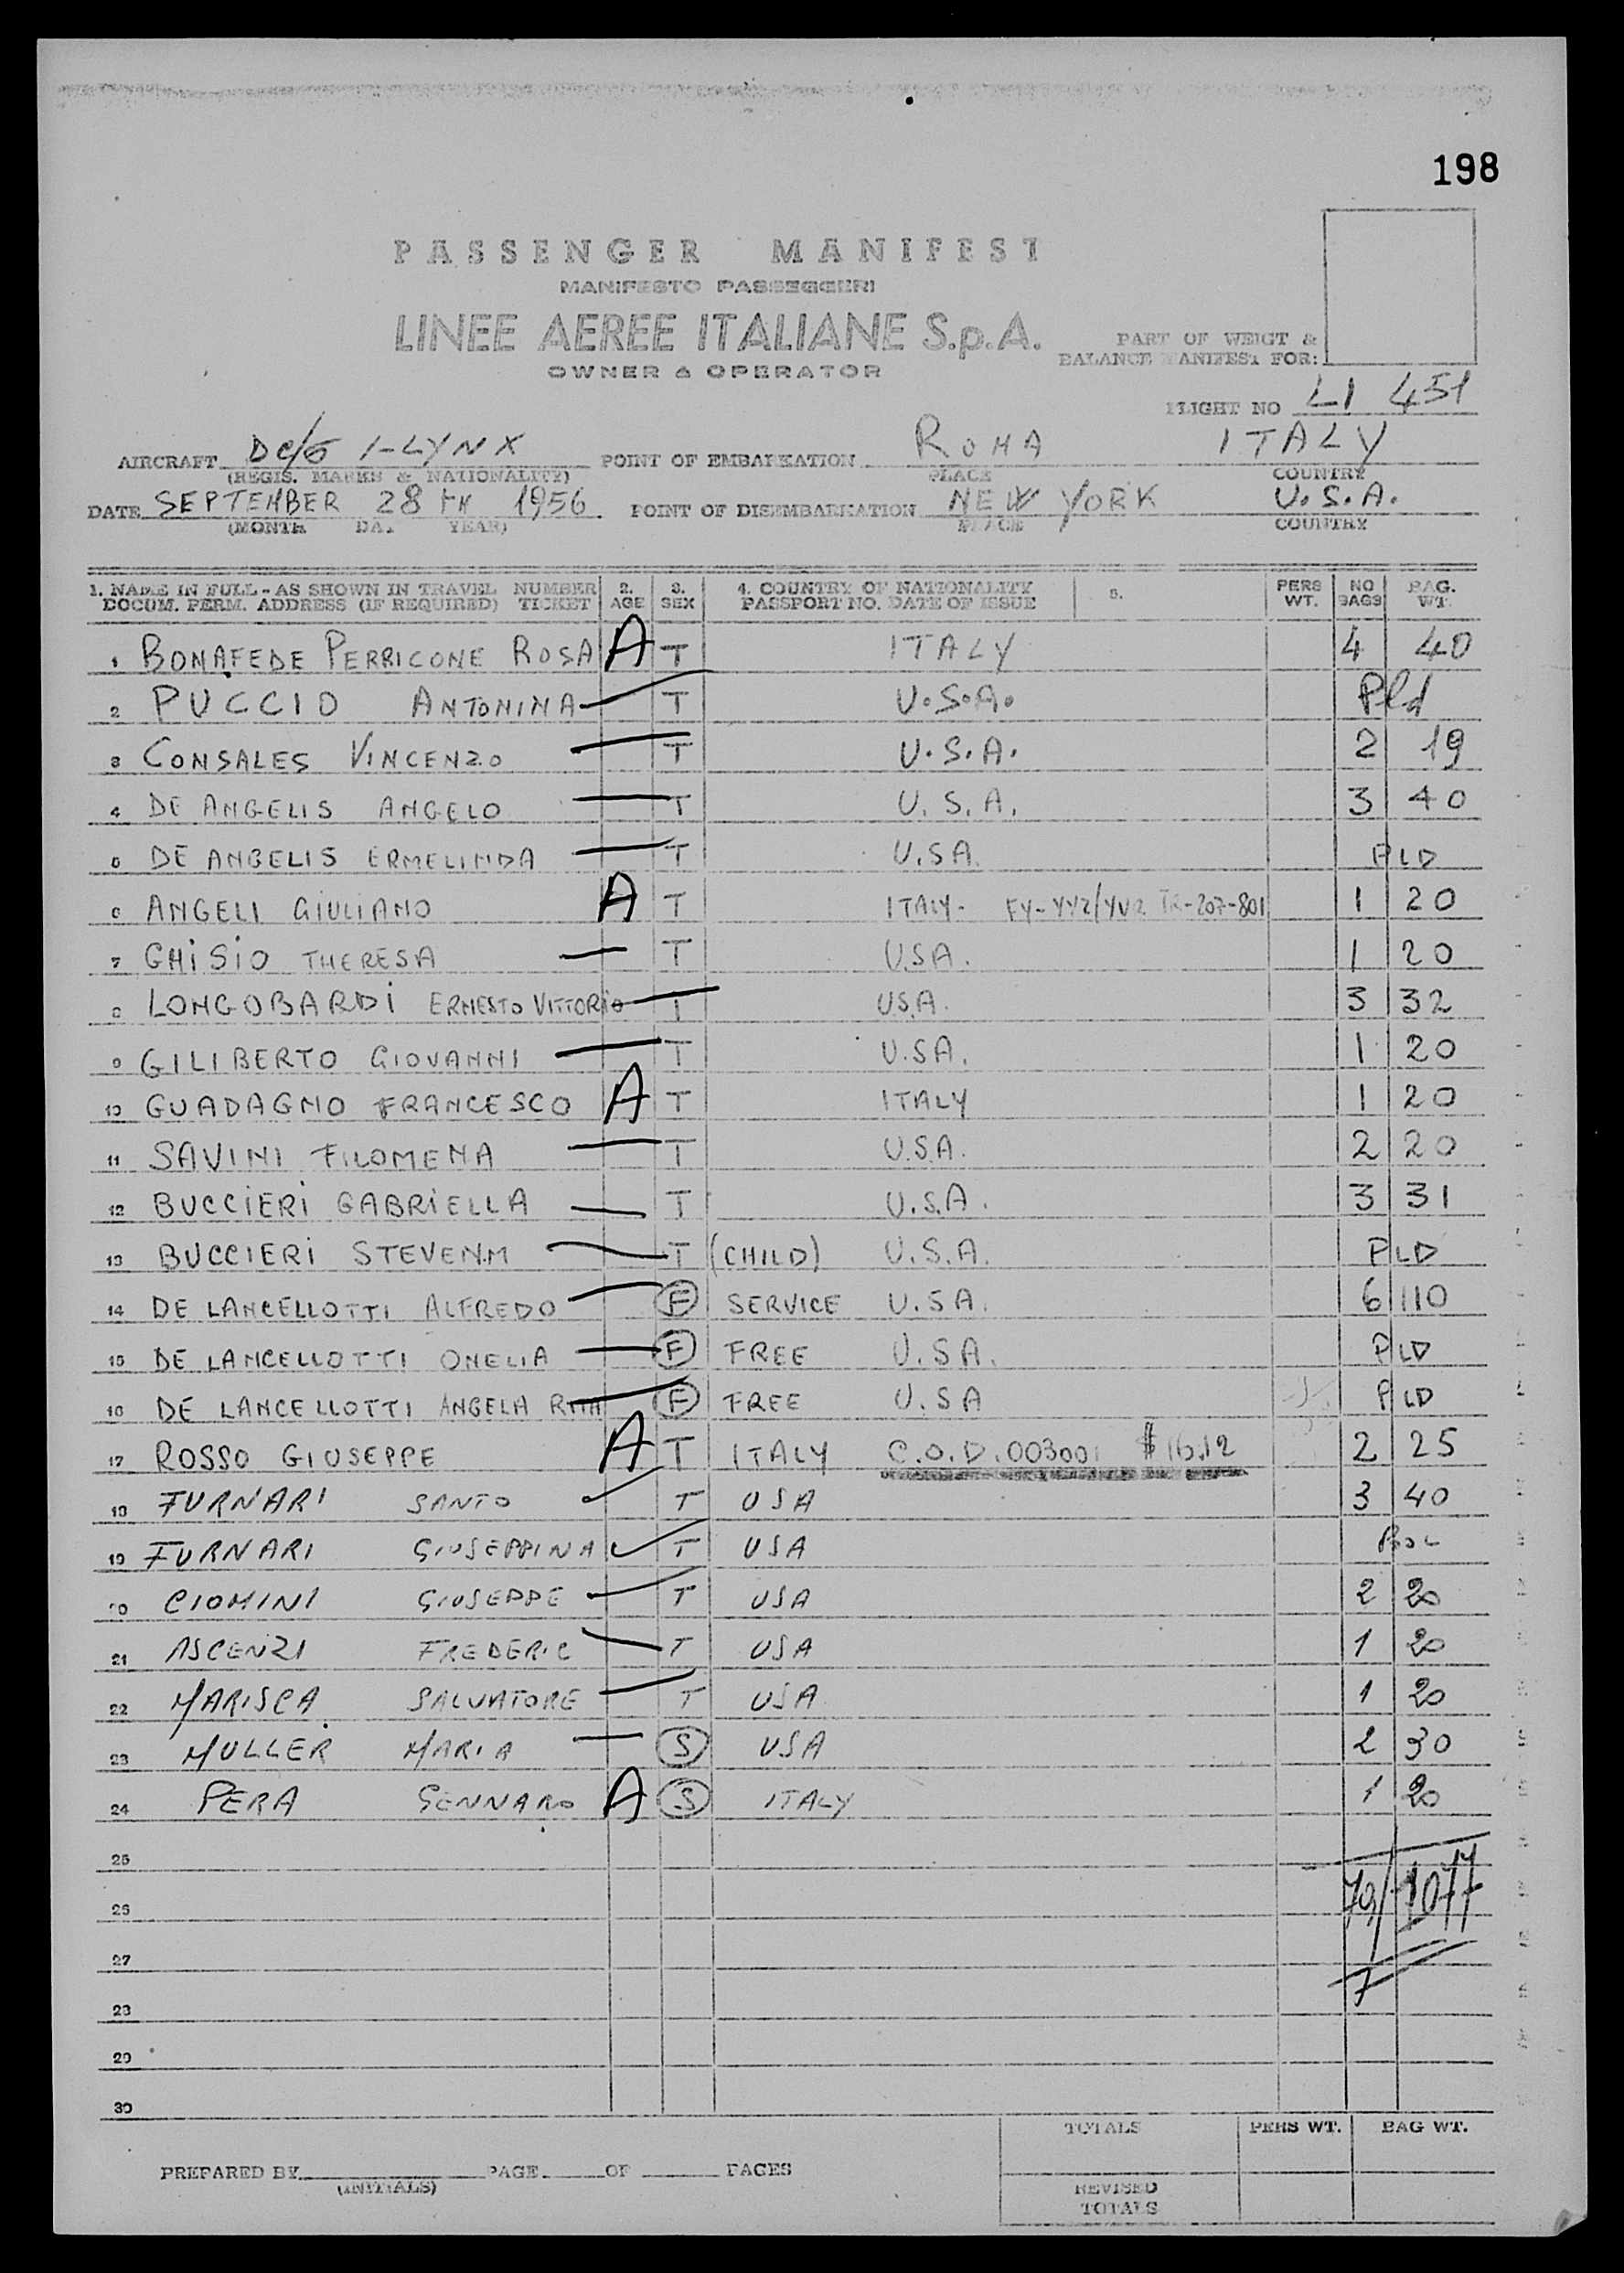 198
PASSENGER MANIFEST
MANIFESTO PASSEGGERI
LINEE AEREE ITALIANE S.p.A.
OWNER & OPERATOR
PART OF WEIGT &
BALANCE MANIFEST FOR:
FLIGHT NO LI 451
AIRCRAFT DC/6 I-LYNX POINT OF EMBARKATION ROMA ITALY
(REGIS. MARKS & NATIONALITY) PLACE COUNTRY
DATE SEPTEMBER 28 TH 1956 POINT OF DISEMBARKATION NEW YORK U.S.A.
(MONTH DAY YEAR) PLACE COUNTRY
1. NAME IN FULL - AS SHOWN IN TRAVEL NUMBER 2. 3. 4. COUNTRY OF NATIONALITY 5. PERS NO BAG.
DOCUM. PERM. ADDRESS (IF REQUIRED) TICKET AGE SEX PASSPORT NO. DATE OF ISSUE WT. BAGS WT.
1 BONAFEDE PERRICONE ROSA A T ITALY 4 40
2 PUCCIO ANTONINA T U.S.A. Pld
3 CONSALES VINCENZO T U.S.A. 2 19
4 DE ANGELIS ANGELO T U.S.A. 3 40
5 DE ANGELIS ERMELINDA T U.S.A. PLD
6 ANGELI GIULIANO A T ITALY - 1 20
7 GHISIO THERESA T U.S.A. 1 20
8 LONGOBARDI ERNESTO VITTORIO T USA. 3 32
9 GILIBERTO GIOVANNI T U.S.A. 1 20
10 GUADAGNO FRANCESCO A T ITALY 1 20
11 SAVINI FILOMENA T U.S.A. 2 20
12 BUCCIERI GABRIELLA T U.S.A. 3 31
13 BUCCIERI STEVEN.M T (CHILD) U.S.A. PLD
14 DE LANCELLOTTI ALFREDO F SERVICE U.S.A. 6 110
15 DE LANCELLOTTI ONELIA F FREE U.S.A. PLD
16 DE LANCELLOTTI ANGELA RITA F FREE U.S.A PLD
17 ROSSO GIUSEPPE A T ITALY C.O.D. 003001 $ 16.12 2 25
18 FURNARI SANTO T USA 3 40
19 FURNARI GIUSEPPINA T USA
20 CIOMINI GIUSEPPE T USA 2 20
21 ASCENZI FREDERIC T USA 1 20
22 MARISCA SALVATORE T USA 1 20
23 MULLER MARIA S USA 2 30
24 PERA GENNARO A S ITALY 1 20
25
26 79/1077
27
28
29
30
TOTALS PERS WT. BAG WT.
PREPARED BY PAGE OF PAGES
(INITIALS)
REVISED
TOTALS